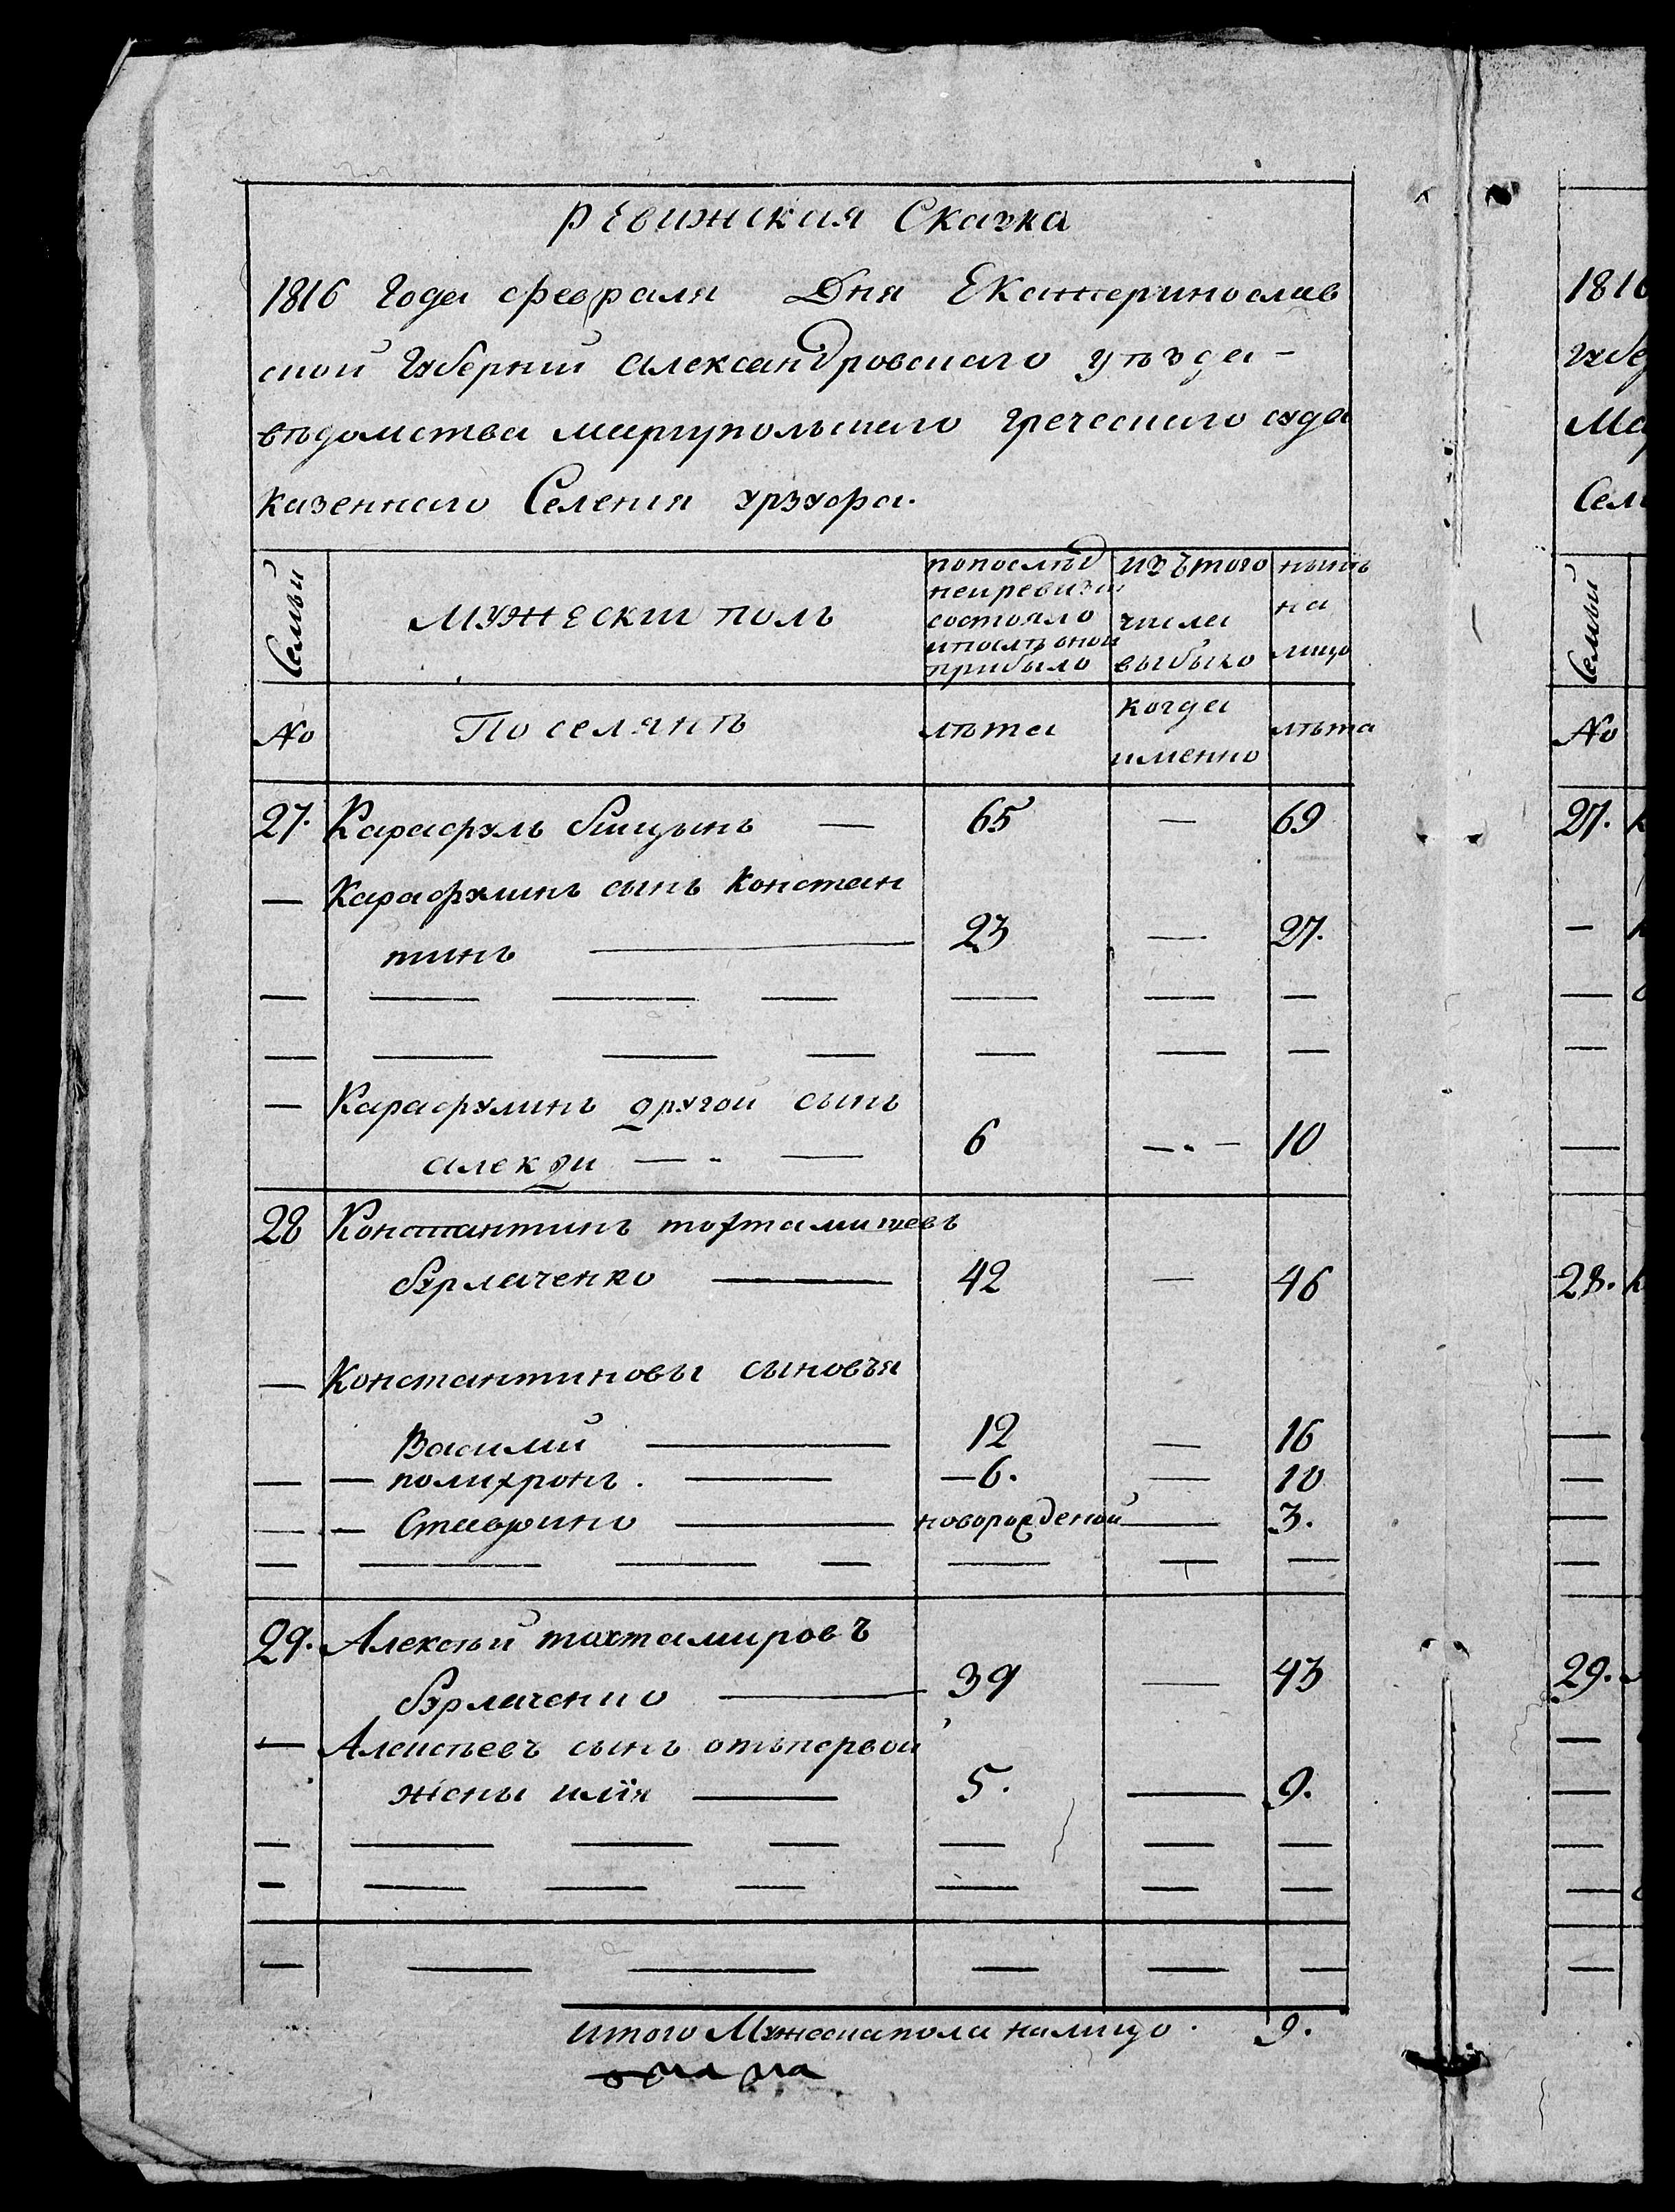 Ревижская Сказка
1816 Года февраля Дня Екатеринослав
ской Губерний александровскаго уѣзда
вѣдомства мариупольскаго греческаго суда
казеннаго Селения урзуфа.
Семьи
мужески полъ
попослѣд
ней ревизи
состояло
ипослѣ оной
прибыло
изъ того
числа
выбыло
нынѣ
на
лицо
No
Поселянѣ
лѣта
когда
именно
лѣта
27. Карафулъ — 65 — 69
— Карафулинъ сынъ констан
тинъ — 23 — 27.
— Карафулинъ другой сынъ
6 — 10
28 Константинъ тохтамишевъ
бурлаченко — 42 — 46
— Константиновы сыновъя
Василий — 12 — 16
— — полихронъ. — 6. — 10
— — Ставрино — новорожденой — 3.
29. Алексѣй тахтамировъ
бурлаченко — 39 — 43
— Алексѣевъ сынъ отъпервой
жены илїя — 5. — 9.
итого Мужескапола налицо. 9.
1816
губе
Ма
Сел
Семьи
No
27.
28.
29.